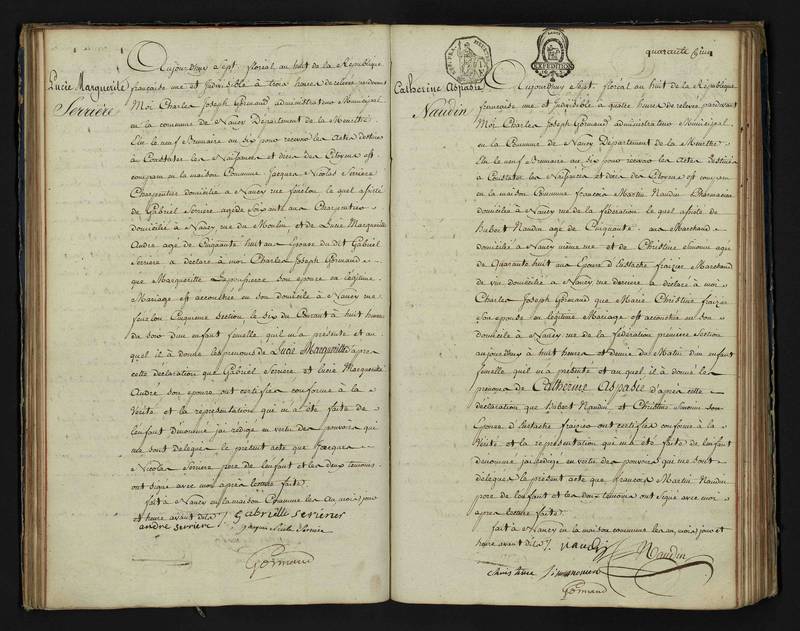 Lucie Marguerite
Serrière
Aujourd'huy sept floréal an huit de la République
française une et Indivisible à trois heures de relevée pardevant
Moi Charles Joseph Gormand administrateur Municipal
en la commune de Nancy Département de la Meurthe
Elu le neuf Brumaire an six pour recevoir les Actes destinés
à Constater les Naissances et décès des Citoyens est
comparu en la maison Commune Jacques Nicolas Serrière
Charpentier domicilié à Nancy rue fouélon le quel assisté
de Gabriel Serrière agé de Soixante ans Charpentier
domicilié à Nancy rue du Moulin, et de Lucie Marguerite
André age de Cinquante huit ans Epouse du dit Gabriel
Serrière a déclaré à moi Charles Joseph Gormand
que Marguerite son epouse en légitime
Mariage est accouchée en son domicile à Nancy rue
fouélon Cinquieme section le six du Courant à huit heures
du soir d'un enfant femelle qu'il m'a présenté et au
quel il à donné les prenoms de Lucie Marguerite d'après
cette déclaration que Gabriel Serrière et Lucie Marguerite
André son épouse ont certifiée conforme à la
Vérité et la représentation qui m'a été faite de
l'enfant dénommé j'ai rédigé en vertu des pouvoirs qui
me sont délégués le présent acte que Jacques
Nicolas Serrière père de l'enfant et les deux témoins
ont signé avec moi après lecture faite.
fait à Nancy en la maison Commune les an, mois, jour
et heure avant dits Gabrielle serierer
andre serriere
Gormand
quarante
EXPEDITION
Catherine Aspasie
Naudin
Aujourdhuy sept floréal an huit de la République
française une et Indivisible à quatre heures de relevée pardevant
Moi Charles Joseph Gormand administrateur Municipal
en la Commune de Nancy Département de la Meurthe
Elu le neuf Brumaire an six pour recevoir les Actes Destinés
à Constater les Naissances et décès des Citoyens est comparu
en la maison Commune françois Martin Naudin Pharmacien
domicilié à Nancy rue de la fédération le quel assisté de
Hubert Naudin age de Cinquante ans Marchand
domicilié à Nancy même rue et de Christine Simonin agée
de Quarante huit ans Epouse d'Eustache fraizier Marchand
de vin domiciliée à Nancy rue derriere a déclaré à moi
Charles Joseph Gormand que Marie Christine fraizier
son epouse en légitime Mariage est accouchée en son
domicile à Nancy rue de la fédération première Section
aujourdhuy à huit heures et demie du Matin d'un enfant
femelle qu'il m'a présenté et au quel il à donné les
prenoms de Catherine Aspasie d'après cette
déclaration que Hubert Naudin et Christine Simonin
Epouse d'Eustache fraizier ont certifiée conforme à la
Vérité et la représentation qui m'a été faite de l'enfant
dénommé j'ai rédigé en vertu des pouvoirs qui me sont
délégués le présent acte que francois Martin Naudin
père de l'enfant et les deux témoins ont signé avec moi
après lecture faite.
fait à Nancy en la maison commune les an, mois, jour et
heure avant dits Naudin Naudin
christine simonin
Gormand